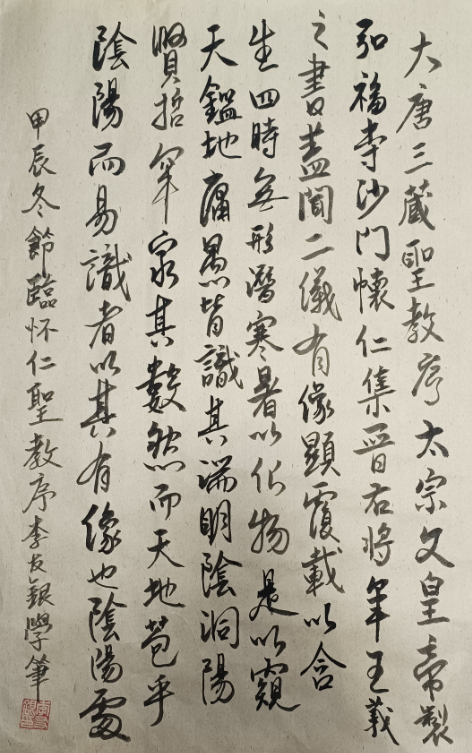 大唐三藏聖教序太宗文皇帝製
弘福寺沙門懷仁集晉右將軍王羲
之書蓋聞二儀有像顯覆載以含
生四時無形潛寒暑以化物是以窺
天鑑地庸愚皆識其端明陰洞陽
賢哲罕窮其數然而天地苞乎
陰陽而易識者以其有像也陰陽處
甲辰冬節臨怀仁聖教序李友銀學筆